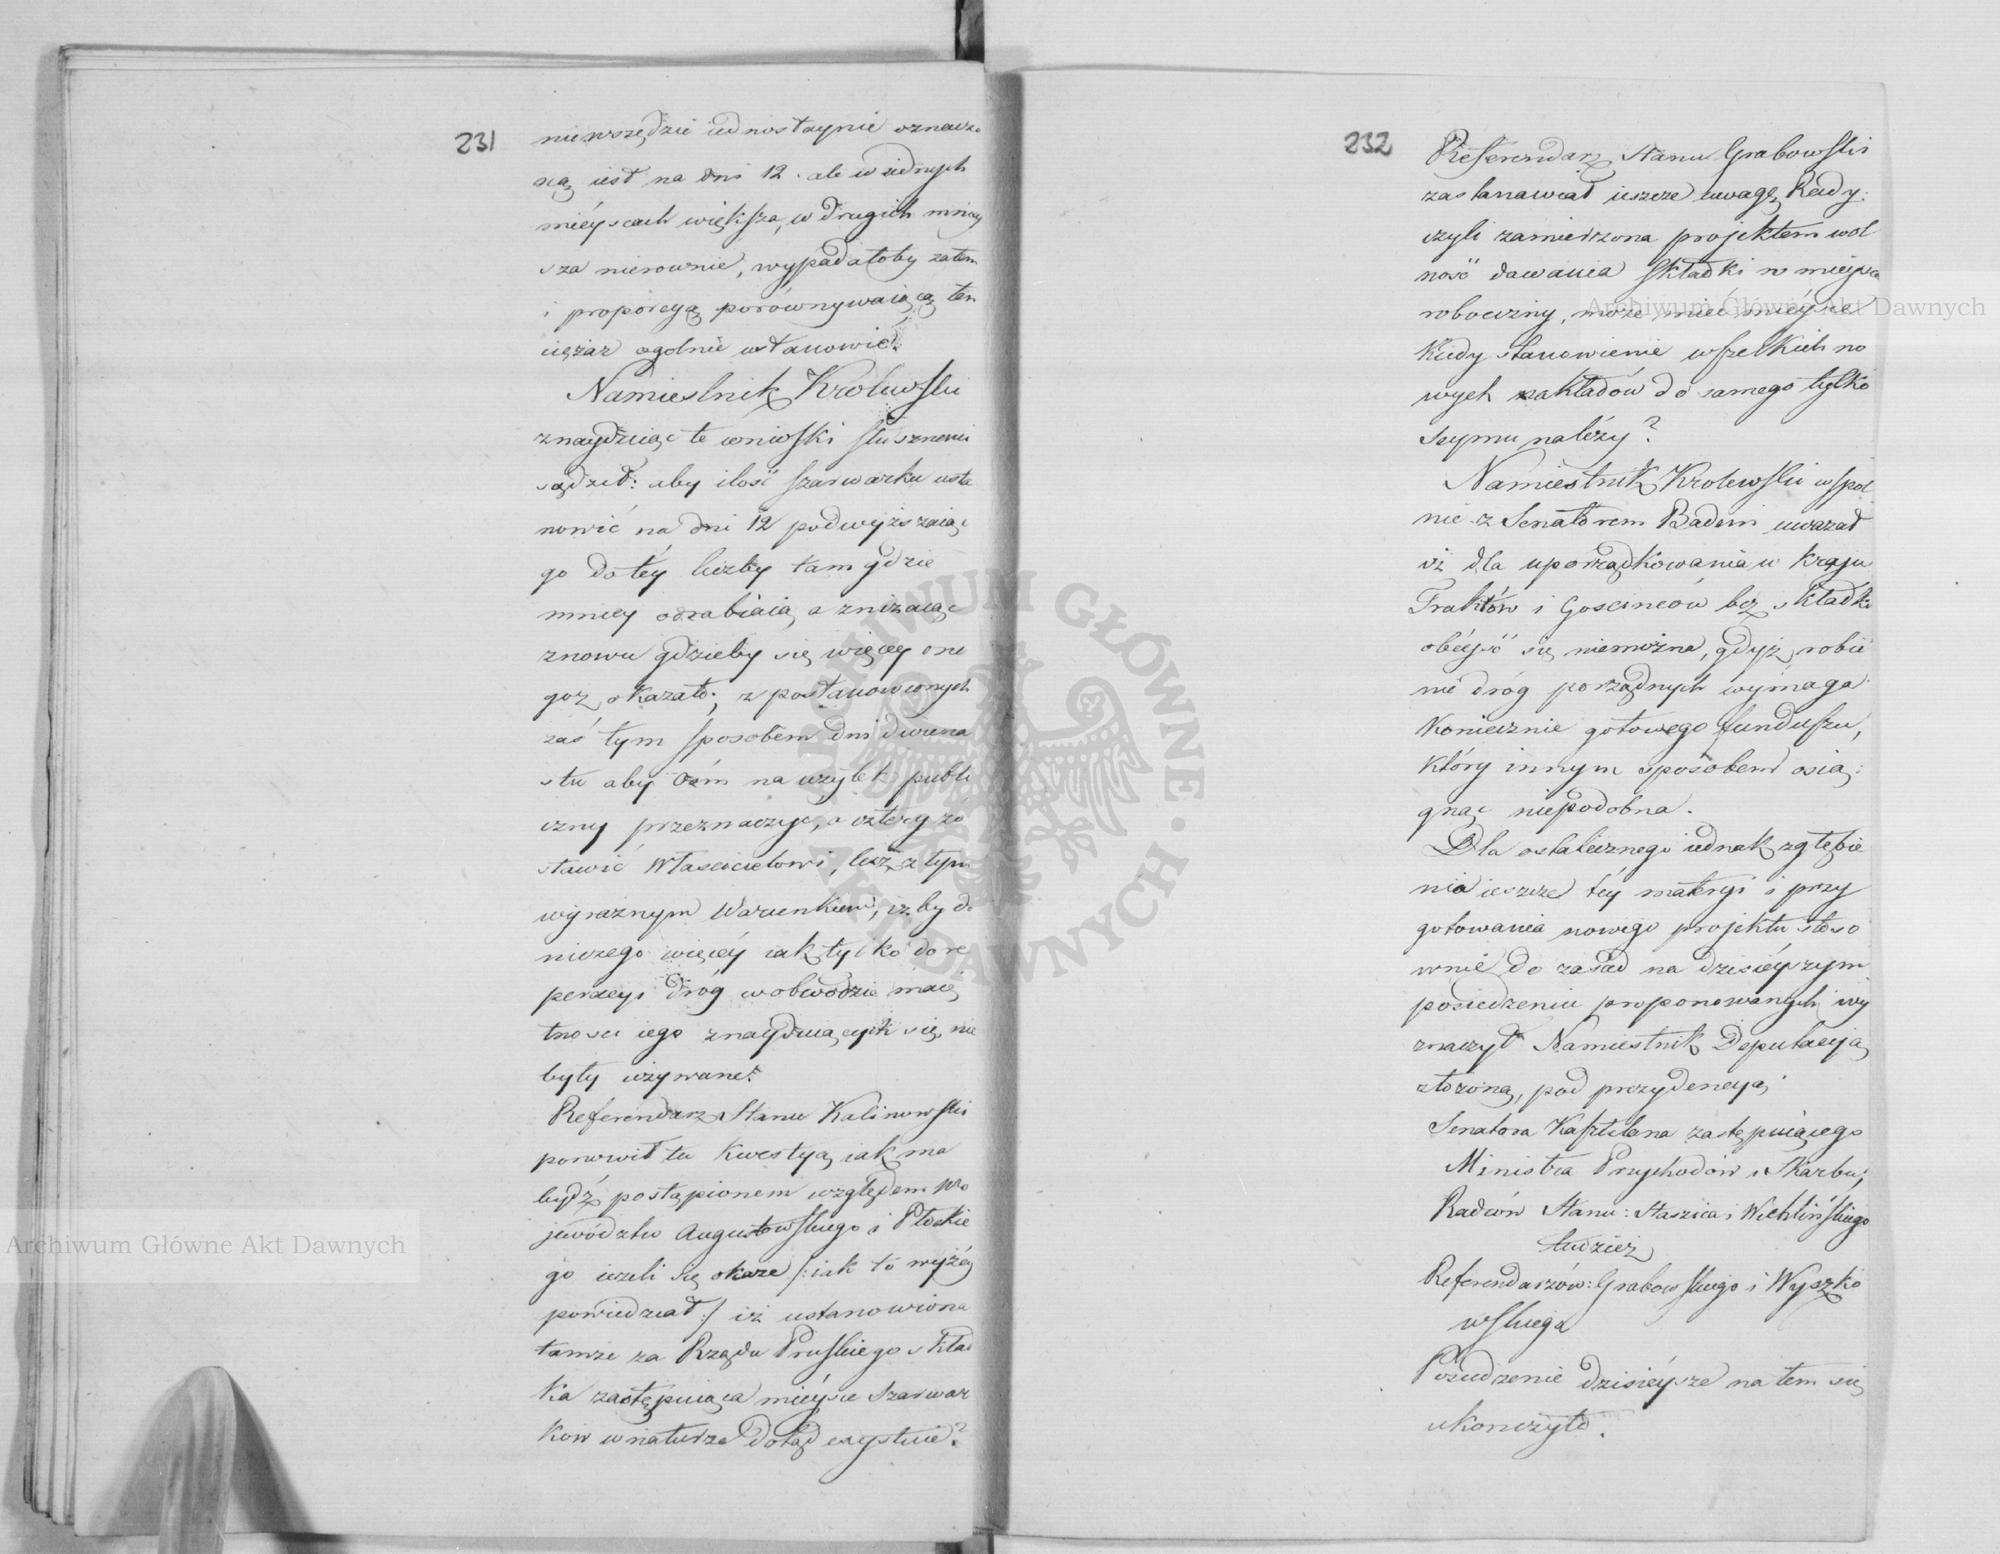 231
niewszędzie iednostaynie oznaczo
ną iest na dni 12. ale w iednych
mieyscach większa, w drugich mniey
sza nierownie, wypadałoby zatem
i proporcyą porównywaiącą ten
ciężar ogolnie ustanowić.
Namiestnik Krolewski
znayduiąc te wnioski słusznemi
sądził: aby ilość szarwarku usta
nowić na dni 12 podwyższaiąc
go do téy liczby tam gdzie
mniey odrabiaią a zniżaiąc
znowu gdzieby się więcey one
goż okazało; z postanowionych
zaś tym sposobem dni dwuna
stu aby ośm na użytek publi
czny przeznaczyć, a cztery zo
stawić Właścicielowi, lecz z tym
wyraźnym Warunkiem, iżby do
niczego więcéy iak tylko do re
peracyi dróg w obwodzie maię
tności iego znayduiących się, nie
były używane.
Referendarz Stanu Kalinowski
ponowił tu kwestyą iak ma
bydź postąpionem względem Wo
jewództw Augustowskiego i Płockie
go ieżeli się okaże /: iak to wyżéy
powiedział :/ iż ustanowiona
tamże za Rządu Pruskiego skład
ka zastępuiąca mieysce Szarwar
kow w naturze dotąd exystuie?
232
Referendarz Stanu Grabowski
zastanawiał ieszcze uwagę Rady:
czyli zamierzona projektem wol
ność dawania składki w mieysce
robocizny, może mieć mieysce
kiedy stanowienie wszelkich no
wych nakładów do samego tylko
Seymu należy?
Namiestnik Krolewski wspol
nie z Senatorem Badeni uważał
iż dla uporządkowania w kraju
Traktów i Gościncow bez składki
obéyść się niemożna, gdyż robie
nie dróg porządnych wymaga
koniecznie gotowego funduszu,
który innym sposobem osią:
gnąć niepodobna.
Dla ostatecznego iednak zgłębie
nia ieszcze téy materyi i przy
gotowania nowego projektu stoso
wnie do zasad na dzisiéyszym
posiedzeniu proponowanych wy
znaczył Namiestnik Deputacyją
złożoną, pod prezydencyą;
Senatora Kasztelana zastępuiącego
Ministra Przychodów i Skarbu;
Radców Stanu: Staszica i Wichlińskiego
tudzież
Referendarzów: Grabowskiego i Wyszko
wskiego
Posiedzenie dzisiéysze na tem się
ukonczyło.
Archiwum Główne Akt Dawnych
Archiwum Główne Akt Dawnych
ARCHIWUM GŁÓWNE · AKT DAWNYCH ·